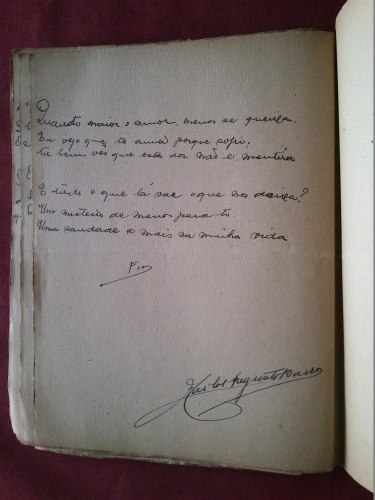 Quanto maior o amor, menos se
Eu vejo que te amei porque sofri,
tu bem vês que esta dor não é mentira
E tudo o que lá vae o que nos
Um misterio de menos para ti
Uma saudade a mais na minha vida
Fim
Carlos Augusto